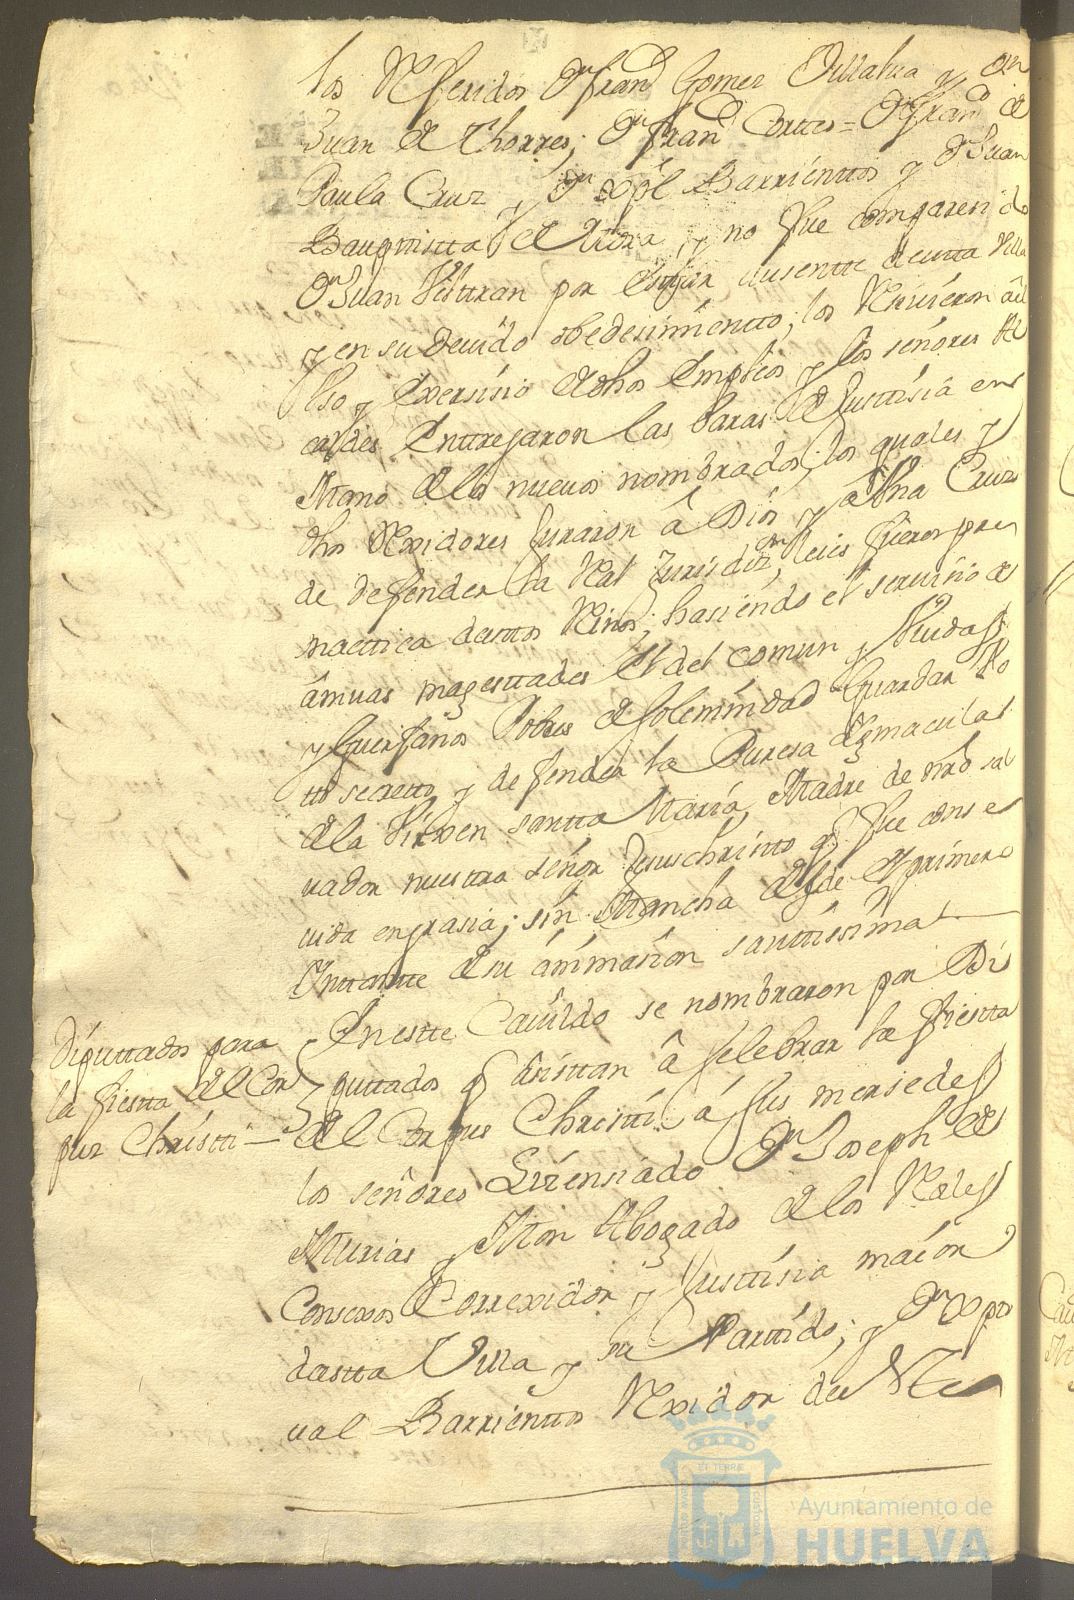 los Referidos Dn fran.co Gomez Villalva y Dn
Juan de Thorres; Dn fran.co Cortes = Dn fran.co de
Paula Cruz y Dn Xpl Barrienttos y Dn Juan
Baupttistta de Mora, y no fue comparendo
Dn Juan Belttran por esttar ausentte de estta Villa
y en su devido obedesimientto, los Resivieron al
Uso y Exersisio de dhos Empleos y los señores Al
caldes Enttregaron las baras de Justtisia en
Mano de los nuevos nombrados; los quales y
dhos Rexidores Juraron â Dios y â Una Cruz
de defender la Real Jurisdizon, leies fueros pre
mactica de esttos Reinos; hasiendo el servisio de
âmvas magesttades el del comun y Viudas
y huerfanos Pobres de solemnidad Guardar
tto secretto y defender la Puresa
de la Virxen santta Maria Madre de nro sal
vador nuestro señor Jesuchristto q fue conse
vida en grasia; sin Mancha desde el primero
Ynttantte de su ânimasion santtissima
Diputtados para
la fiestta del Cor
pus Christti
En estte Cavildo se nombraron por Di
puttados q âsisttan â selebrar la fiestta
del Corpus Christti â sus mersedes
los señores Lizensiado Dn Joseph de
Murias y Mon Abogado de los Rales
Consexos Correxidor y Justtisia maior
de estta Villa y su Parttido; y Dn Xpto
val Barrienttos Rexidor de
Ayuntamiento de
HUELVA